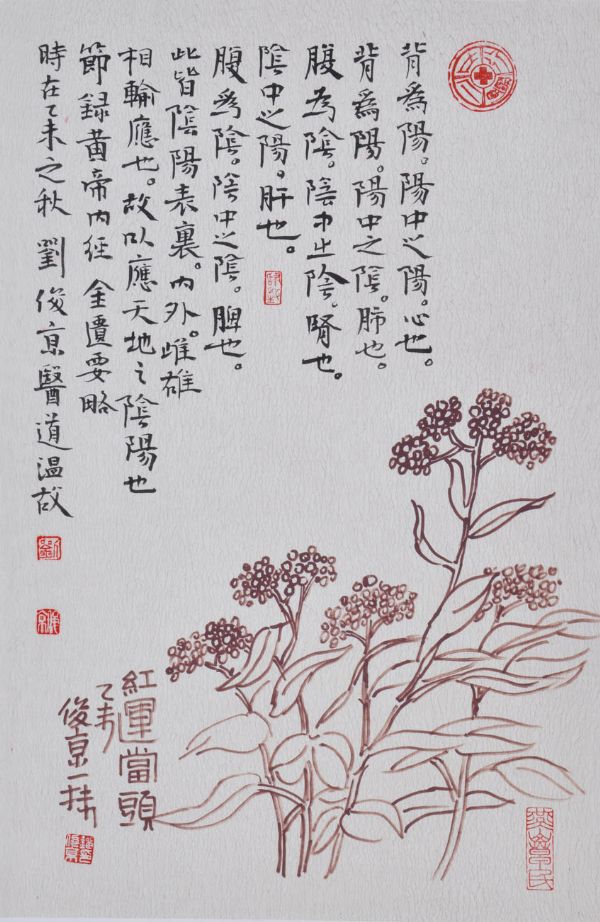 背爲陽。陽中之陽。心也。
背爲陽。陽中之陰。肺也。
腹為陰。陰中之陰。腎也。
陰中之陽。肝也。
腹爲陰。陰中之陰。脾也。
此皆陰陽表裏。内外。雌雄
相輸應也。故以應天地之陰陽也
節録黄帝内经 金匱要略
時在乙未之秋 劉俊京醫道温故
紅運當頭
乙未
俊京一